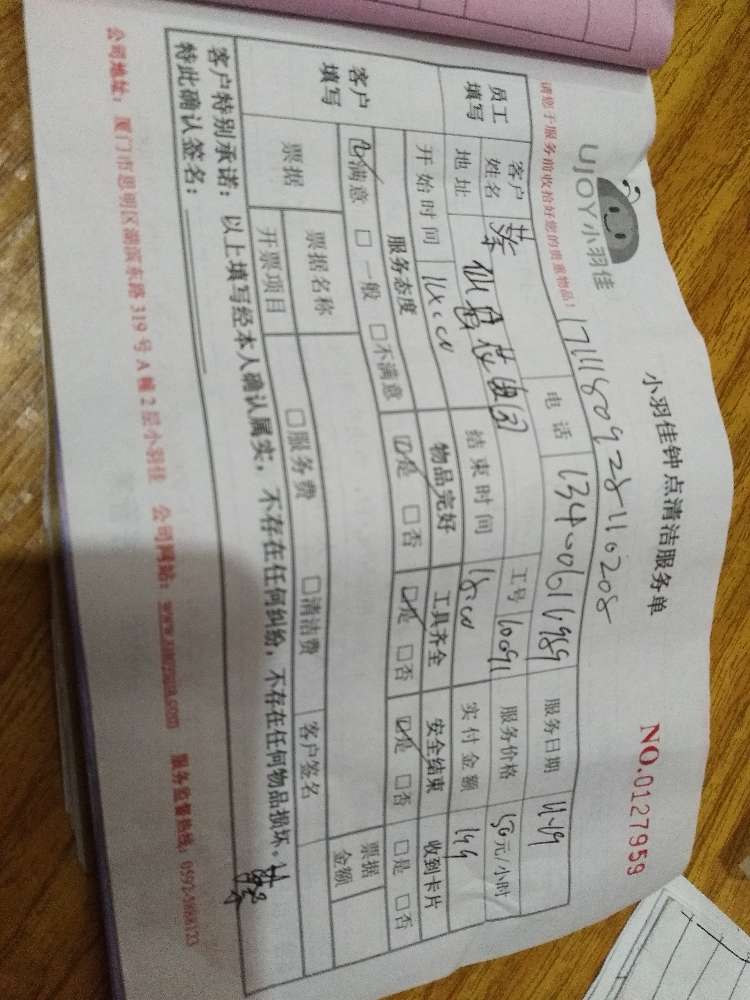 UJOY小羽佳
小羽佳钟点清洁服务单
NO.0127959
请您于服务前收拾好您的贵重物品!
员工填写 客户姓名 蔡 电话 服务日期
地址 工号 10091 服务价格 元/小时
开始时间 结束时间 实付金额 149
客户填写 服务态度 物品完好 工具齐全 安全结束 收到卡片
☑满意 □一般 □不满意 ☑是 □否 ☑是 □否 ☑是 □否 □是 □否
票据 票据名称 客户签名 票据金额
开票项目 □服务费 □清洁费
客户特别承诺:以上填写经本人确认属实,不存在任何纠纷,不存在任何物品损坏。
特此确认签名: 蔡
公司地址:厦门市思明区湖滨东路319号A幢2层小羽佳 公司网站: 服务监督热线: